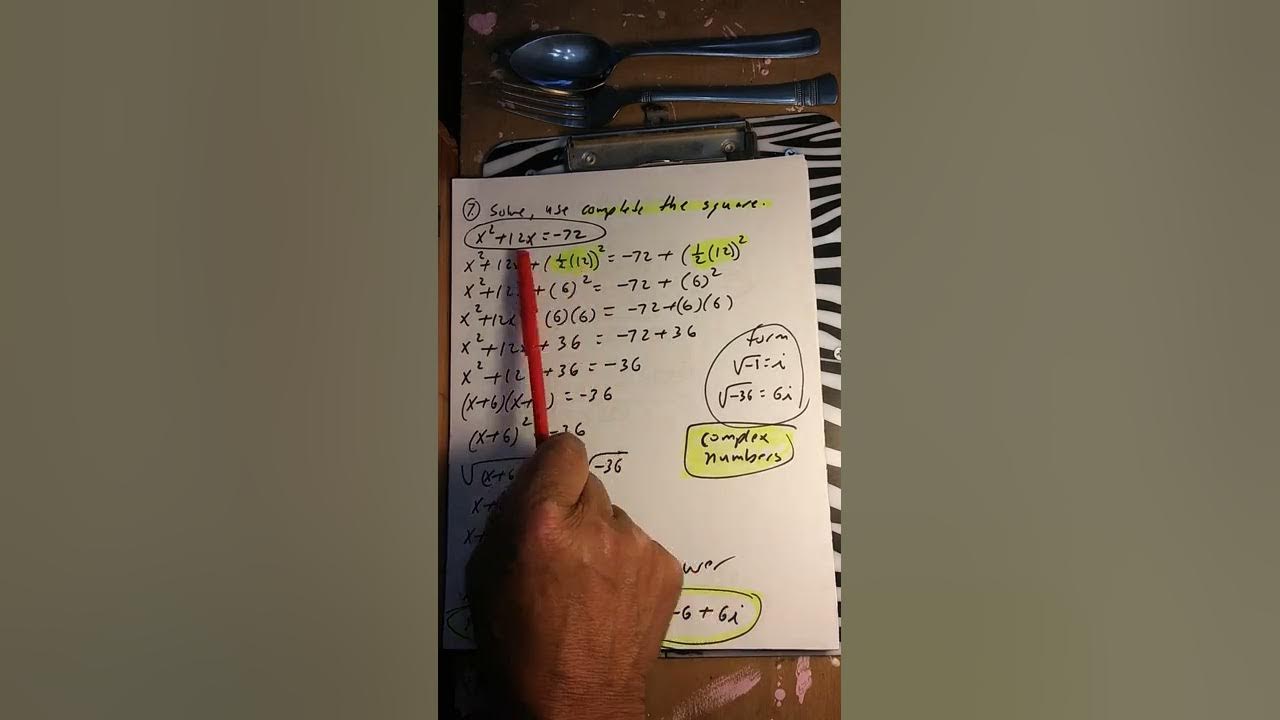 7. Solve, use complete the square.
x² + 12x = -72
x² + 12x + (½(12))² = -72 + (½(12))²
x² + 12x + (6)² = -72 + (6)²
x² + 12x (6)(6) = -72 + (6)(6)
x² + 12x + 36 = -72 + 36
x² + 12 + 36 = -36
(x+6)(x+ ) = -36
(x+6)² -36
√(x+6 √-36
x+
x+
form
√-1 = i
√-36 = 6i
complex
numbers
-6 + 6i